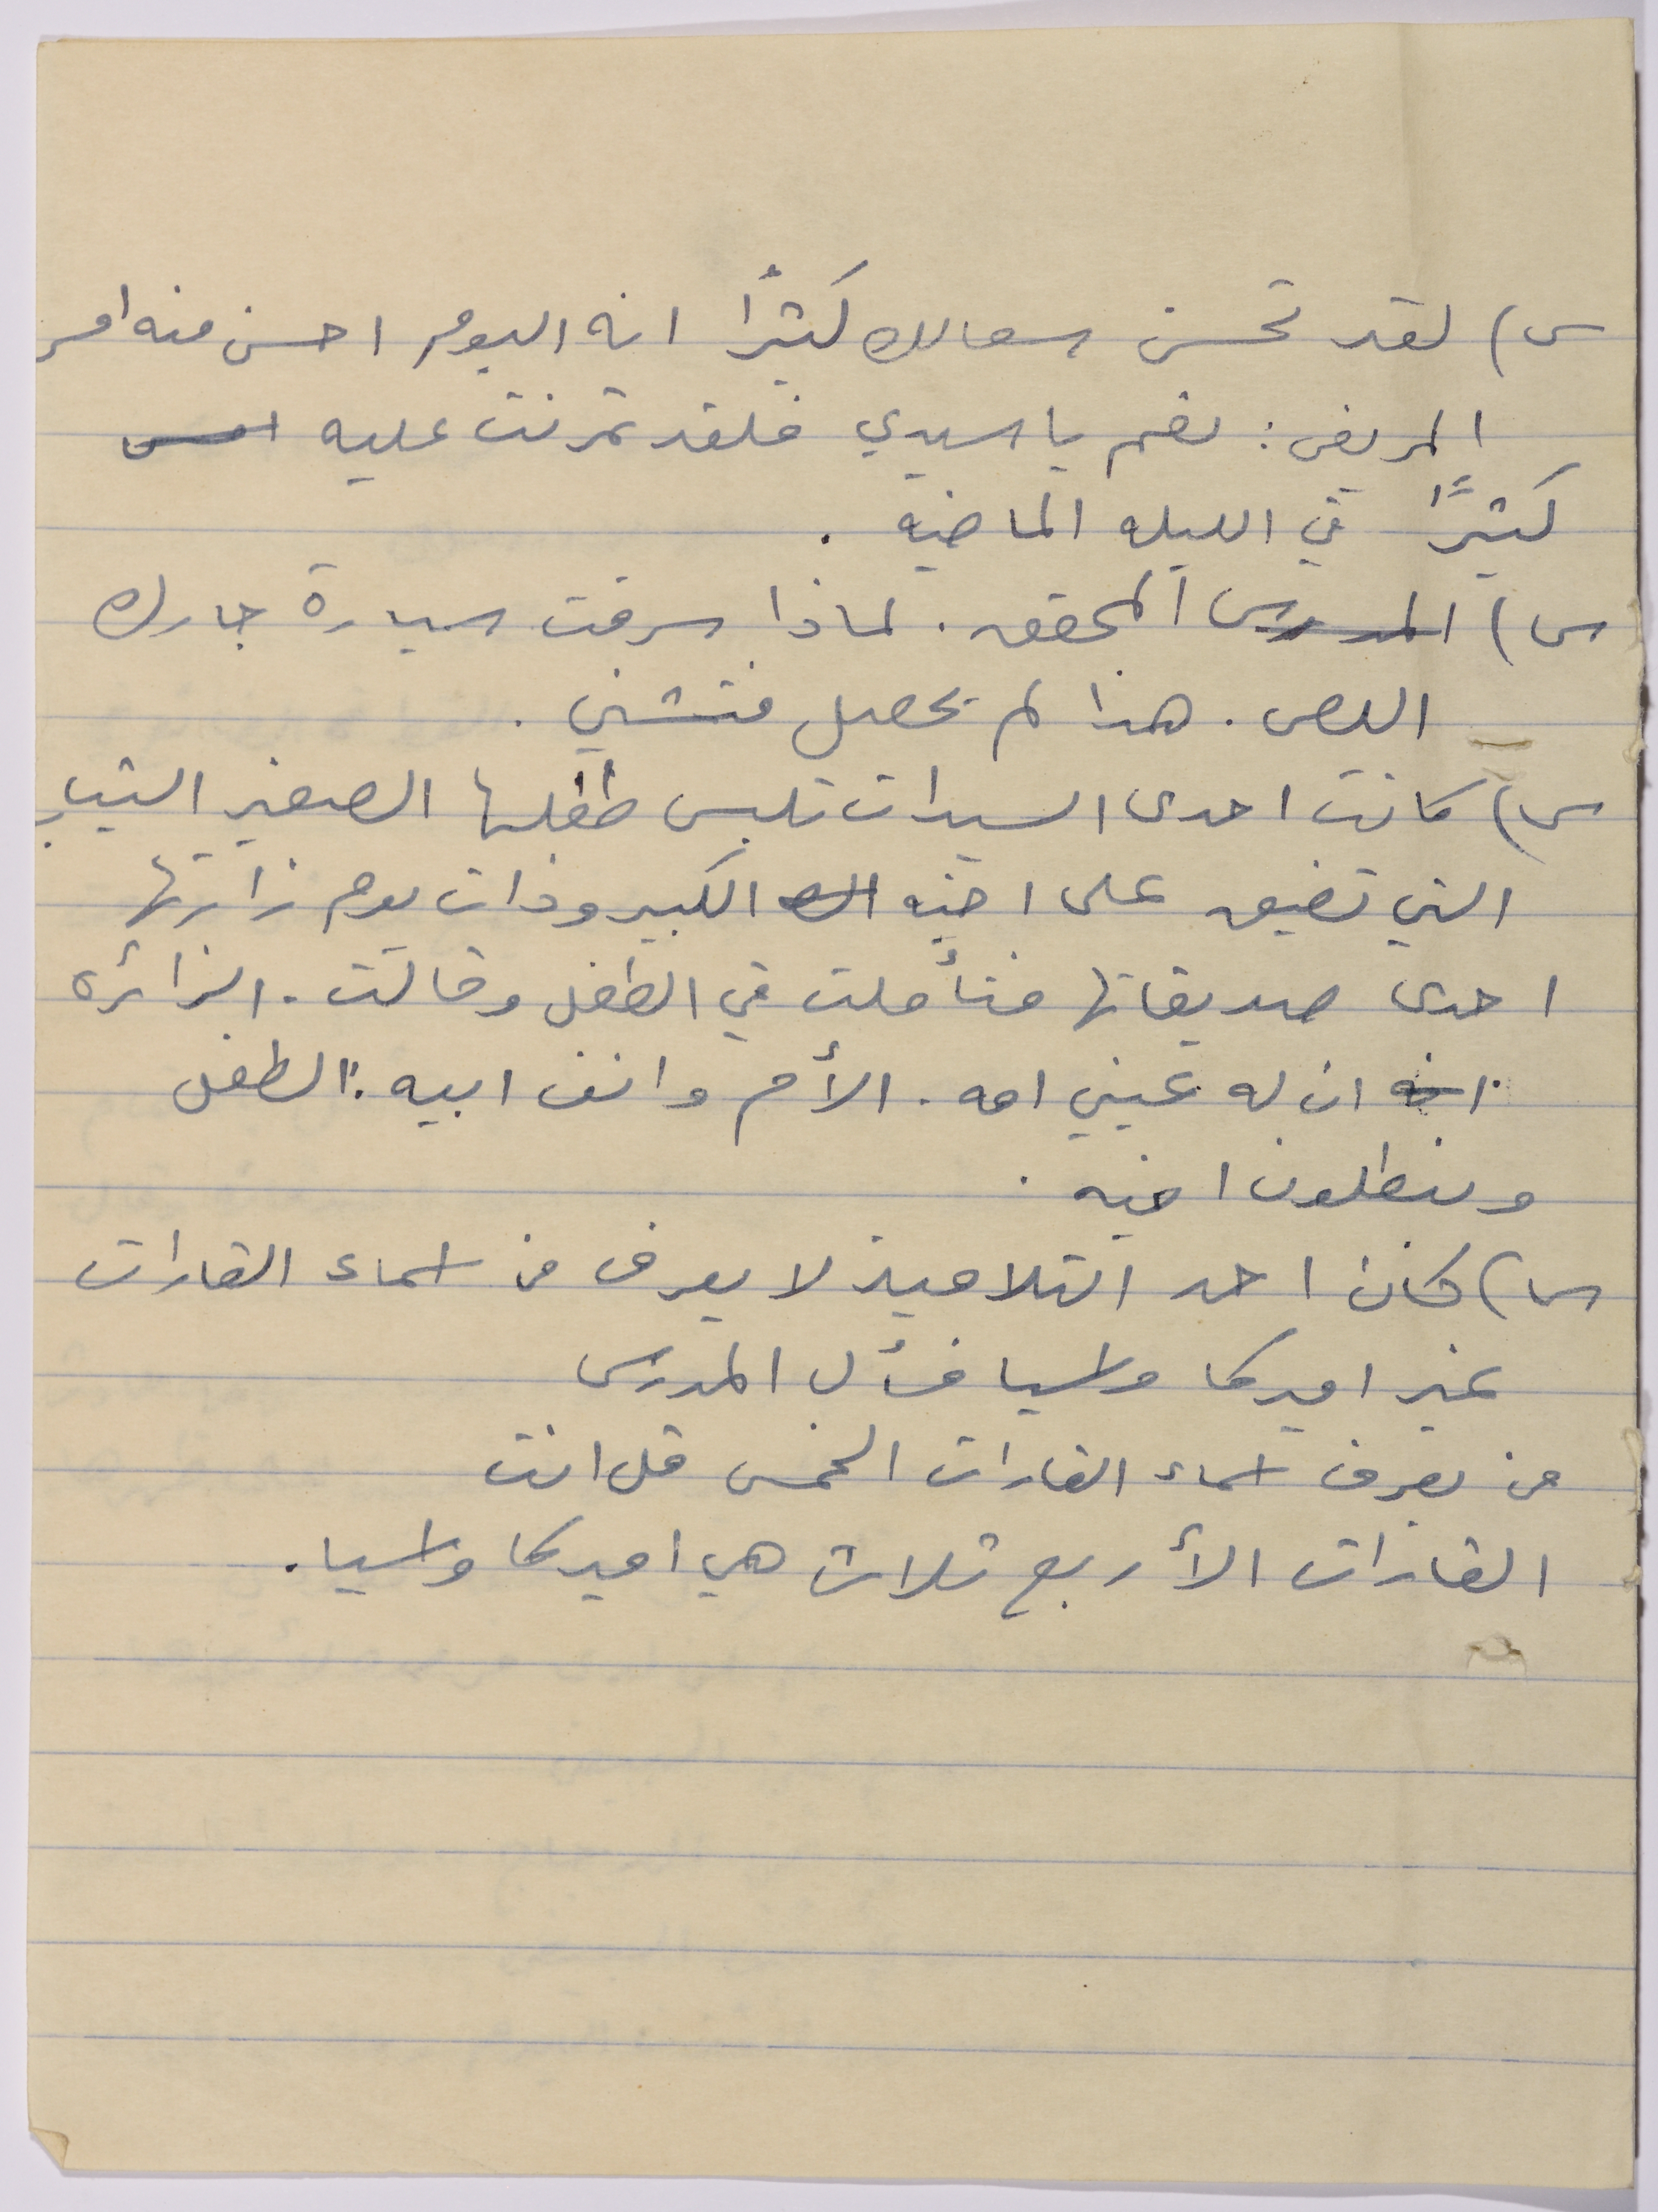 س) لقد تحسن سعالك كثيرًا انه اليوم احسن منه امس
المريض: نعم يا سيدي فلقد تمرنت عليه امس
كثيرًا في الليله الماضيه .
س) المدرس المحقق . لماذا سرقت سيارة جارك
اللص . هذا لم يحصل فتشني .
س) كانت احدى السيدات تلبس طفلها الصغير الثياب
التي تضيق على اخيه الكبير وذات يوم زارتها
احدى صديقاتها فتأملت في الطفل وقالت . الزائره
انه ان له عيني امه . الأم وانف ابيه : الطفل
وبنطلون اخيه .
س) كان احد التلاميذ لا يعرف من اسماء القارات
غير اميركا واسيا فسأل المدرس
من يعرف اسماء القارات الخمس قل انت
القارات الأربع ثلاث هي اميركا واسيا .